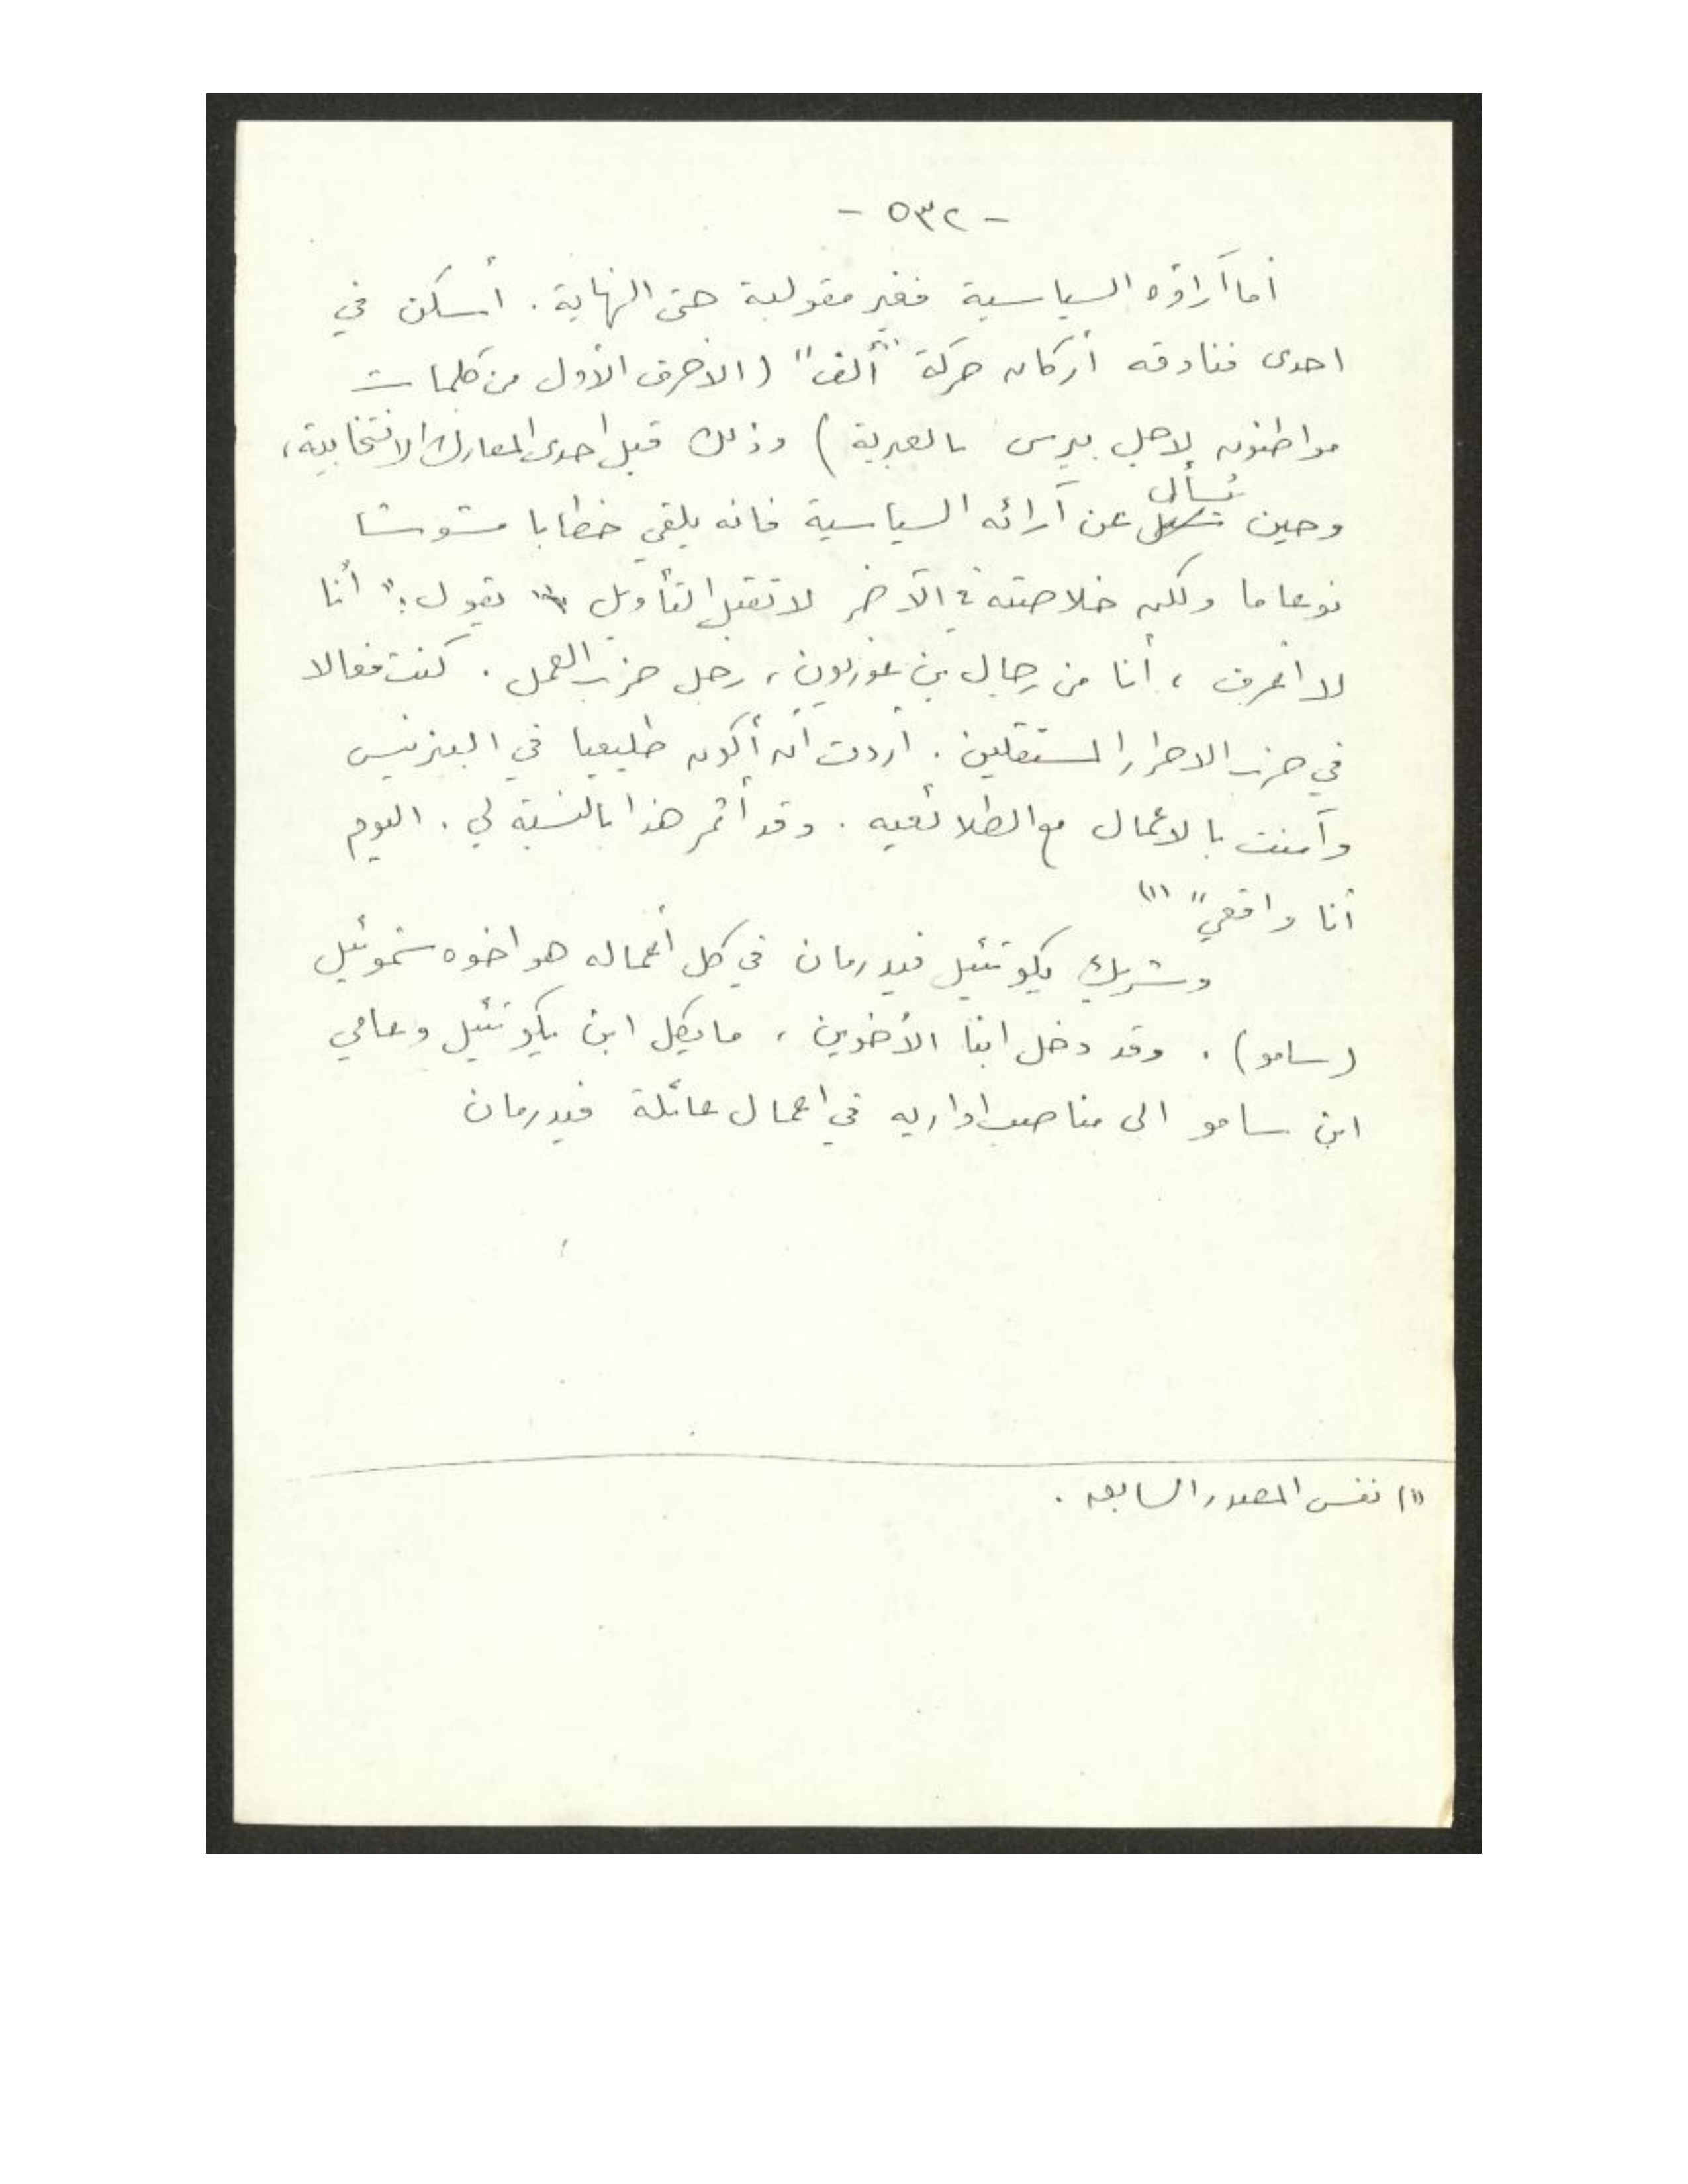 - ٥٣٢ -
أما آراؤه السياسية فغير مقولبة حتى النهاية. أسكن في
احدى فنادقه أركان حركة "ألف" (الاحرف الأول من كلمات
مواطنون لاجل بيرس بالعبرية) وذلك قبل احدى المعارك الانتخابية،
وحين يُسأل عن آرائه السياسية فانه يلقي خطابا مشوشا
نوعا ما ولكن خلاصته في الآخر لا تقبل التأويل يقول: "أنا
لا أعرف، أنا من رجال بن غوريون، رجل حزب العمل. كنت فعالا
في حزب الاحرار المستقلين. أردت أن أكون طليعيا في البيزنيس
وآمنت بالاعمال مع الطلائعيه. وقد أثمر هذا بالنسبة لي. اليوم
أنا واقعي" (١)
وشريك يكوتئيل فيدرمان في كل أعماله هو اخوه شموئيل
(سامو). وقد دخل ابنا الأخوين، مايكل ابن يكوتئيل وعامي
ابن سامو الى مناصب اداريه في اعمال عائلة فيدرمان
(١) نفس المصدر السابق.